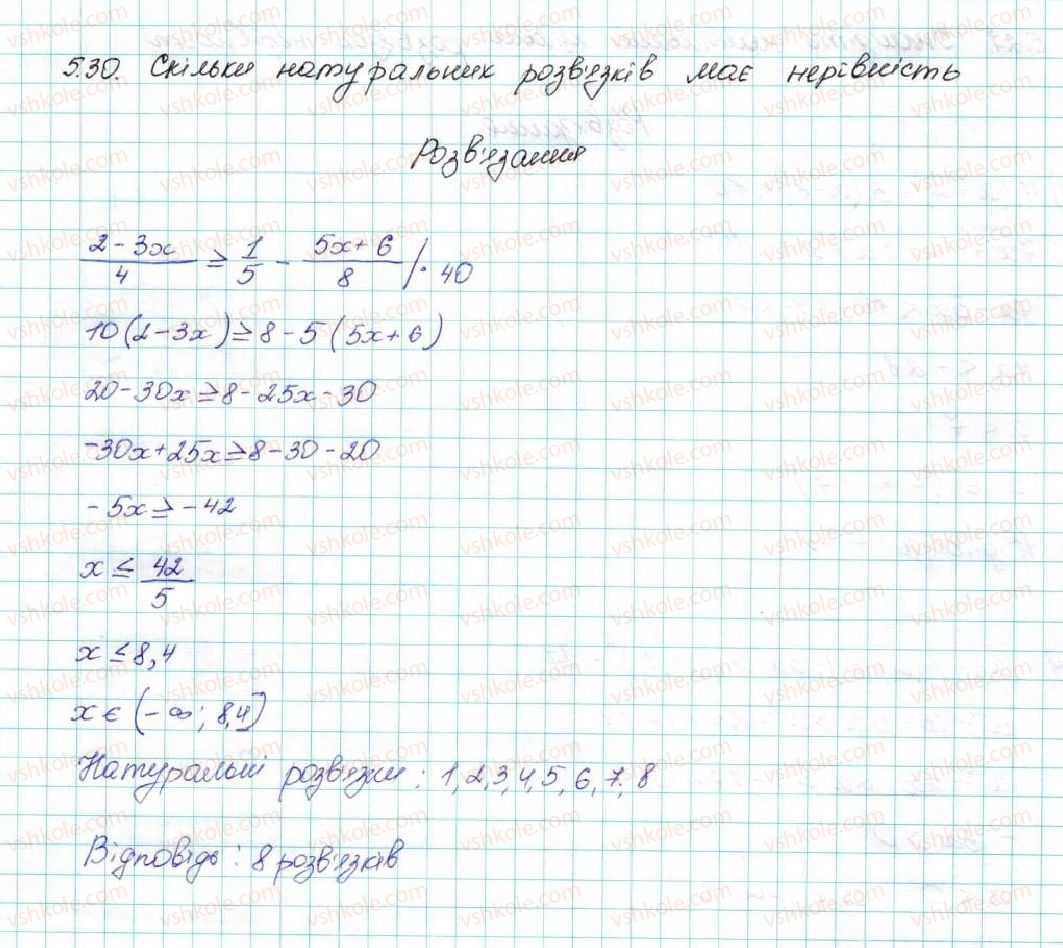 5.30. Скільки натуральних розв'язків має нерівність
Розв'язання
(2-3x)/4 ≥ 1/5 - (5x+6)/8 /· 40
10(2-3x) ≥ 8-5(5x+6)
20-30x ≥ 8-25x-30
-30x+25x ≥ 8-30-20
-5x ≥ -42
x ≤ 42/5
x ≤ 8,4
x ∈ (-∞; 8,4]
Натуральні розв'язки: 1,2,3,4,5,6,7,8
Відповідь: 8 розв'язків